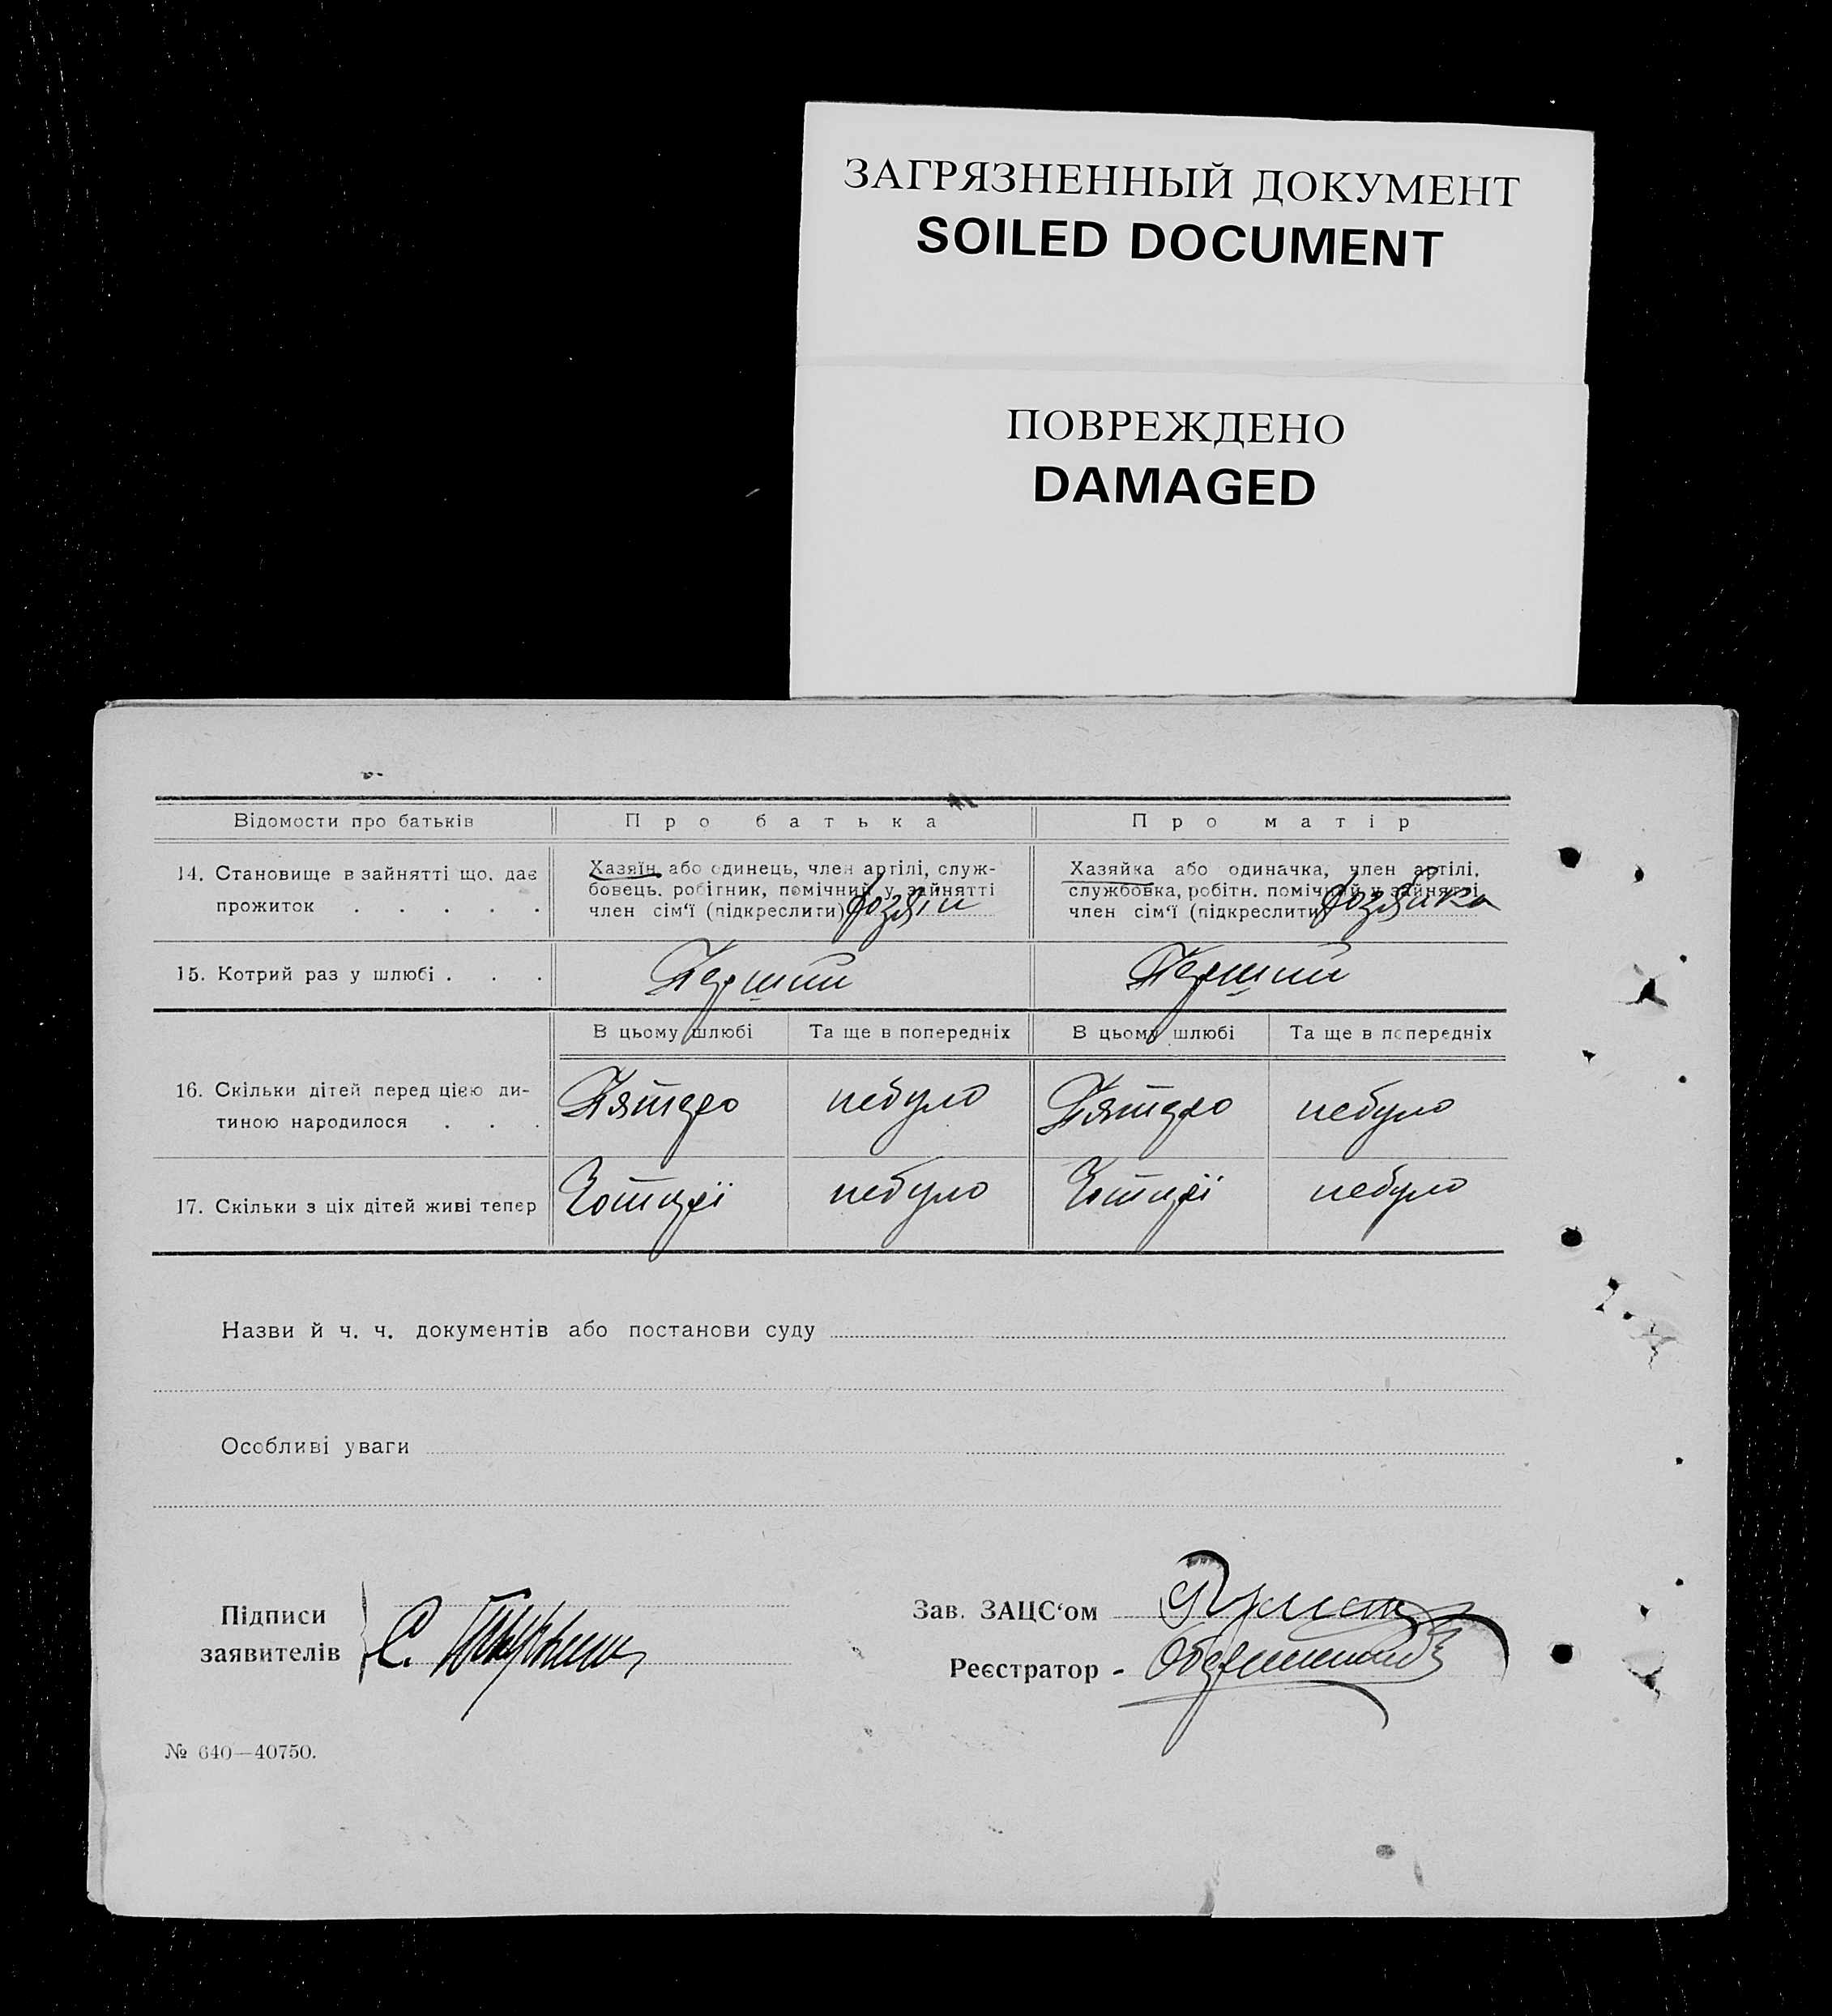 ЗАГРЯЗНЕННЫЙ ДОКУМЕНТ
SOILED DOCUMENT
ПОВРЕЖДЕНО
DAMAGED
Відомости про батьків
Про батька
Про матір
14. Становище в зайнятті що, дає
прожиток . . . . .
Хазяїн, або одинець, член артілі, служ-
бовець, робітник, помічний у зайнятті
член сім'ї (підкреслити) хозяїн
Хазяйка або одиначка, член артілі,
службовка, робітн. помічний у зайнятті
член сім'ї (підкреслити) хозяйка
15. Котрий раз у шлюбі . . .
Перший
Перший
В цьому шлюбі
Та ще в попередніх
В цьому шлюбі
Та ще в попередніх
16. Скільки дітей перед цією ди-
тиною народилося . . .
Пятеро
небуло
Пятеро
небуло
17. Скільки з ціх дітей живі тепер
Чотирї
небуло
Чотирі
небуло
Назви й ч. ч. документів або постанови суду
Особливі уваги
Підписи
заявителів
С.
Зав. ЗАЦС'ом
Реєстратор -
№ 640—40750.